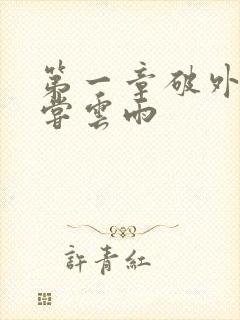 第一章破外
嘗雲雨
許青紅